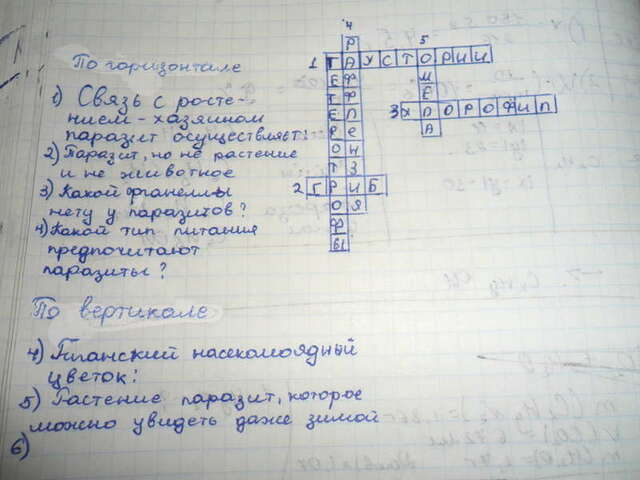 По горизонтале
1) Связь с росте-
нием-хозяином
паразит осуществляет:
2) Паразит, но не растение
и не животное
3) Какой органеллы
нету у паразитов?
4) Какой тип питания
предпочитают
паразиты?
По вертикале
4) Гиганский насекомоядный
цветок:
5) Растение паразит, которое
можно увидеть даже зимой
6)
1 ГАУСТОРИИ
2 ГРИБ
3 ХЛОРОФИЛ
ГЕТЕРОТРОФЫ
4 РАФФЛЕНЗИЯ
5 ОМЕЛА